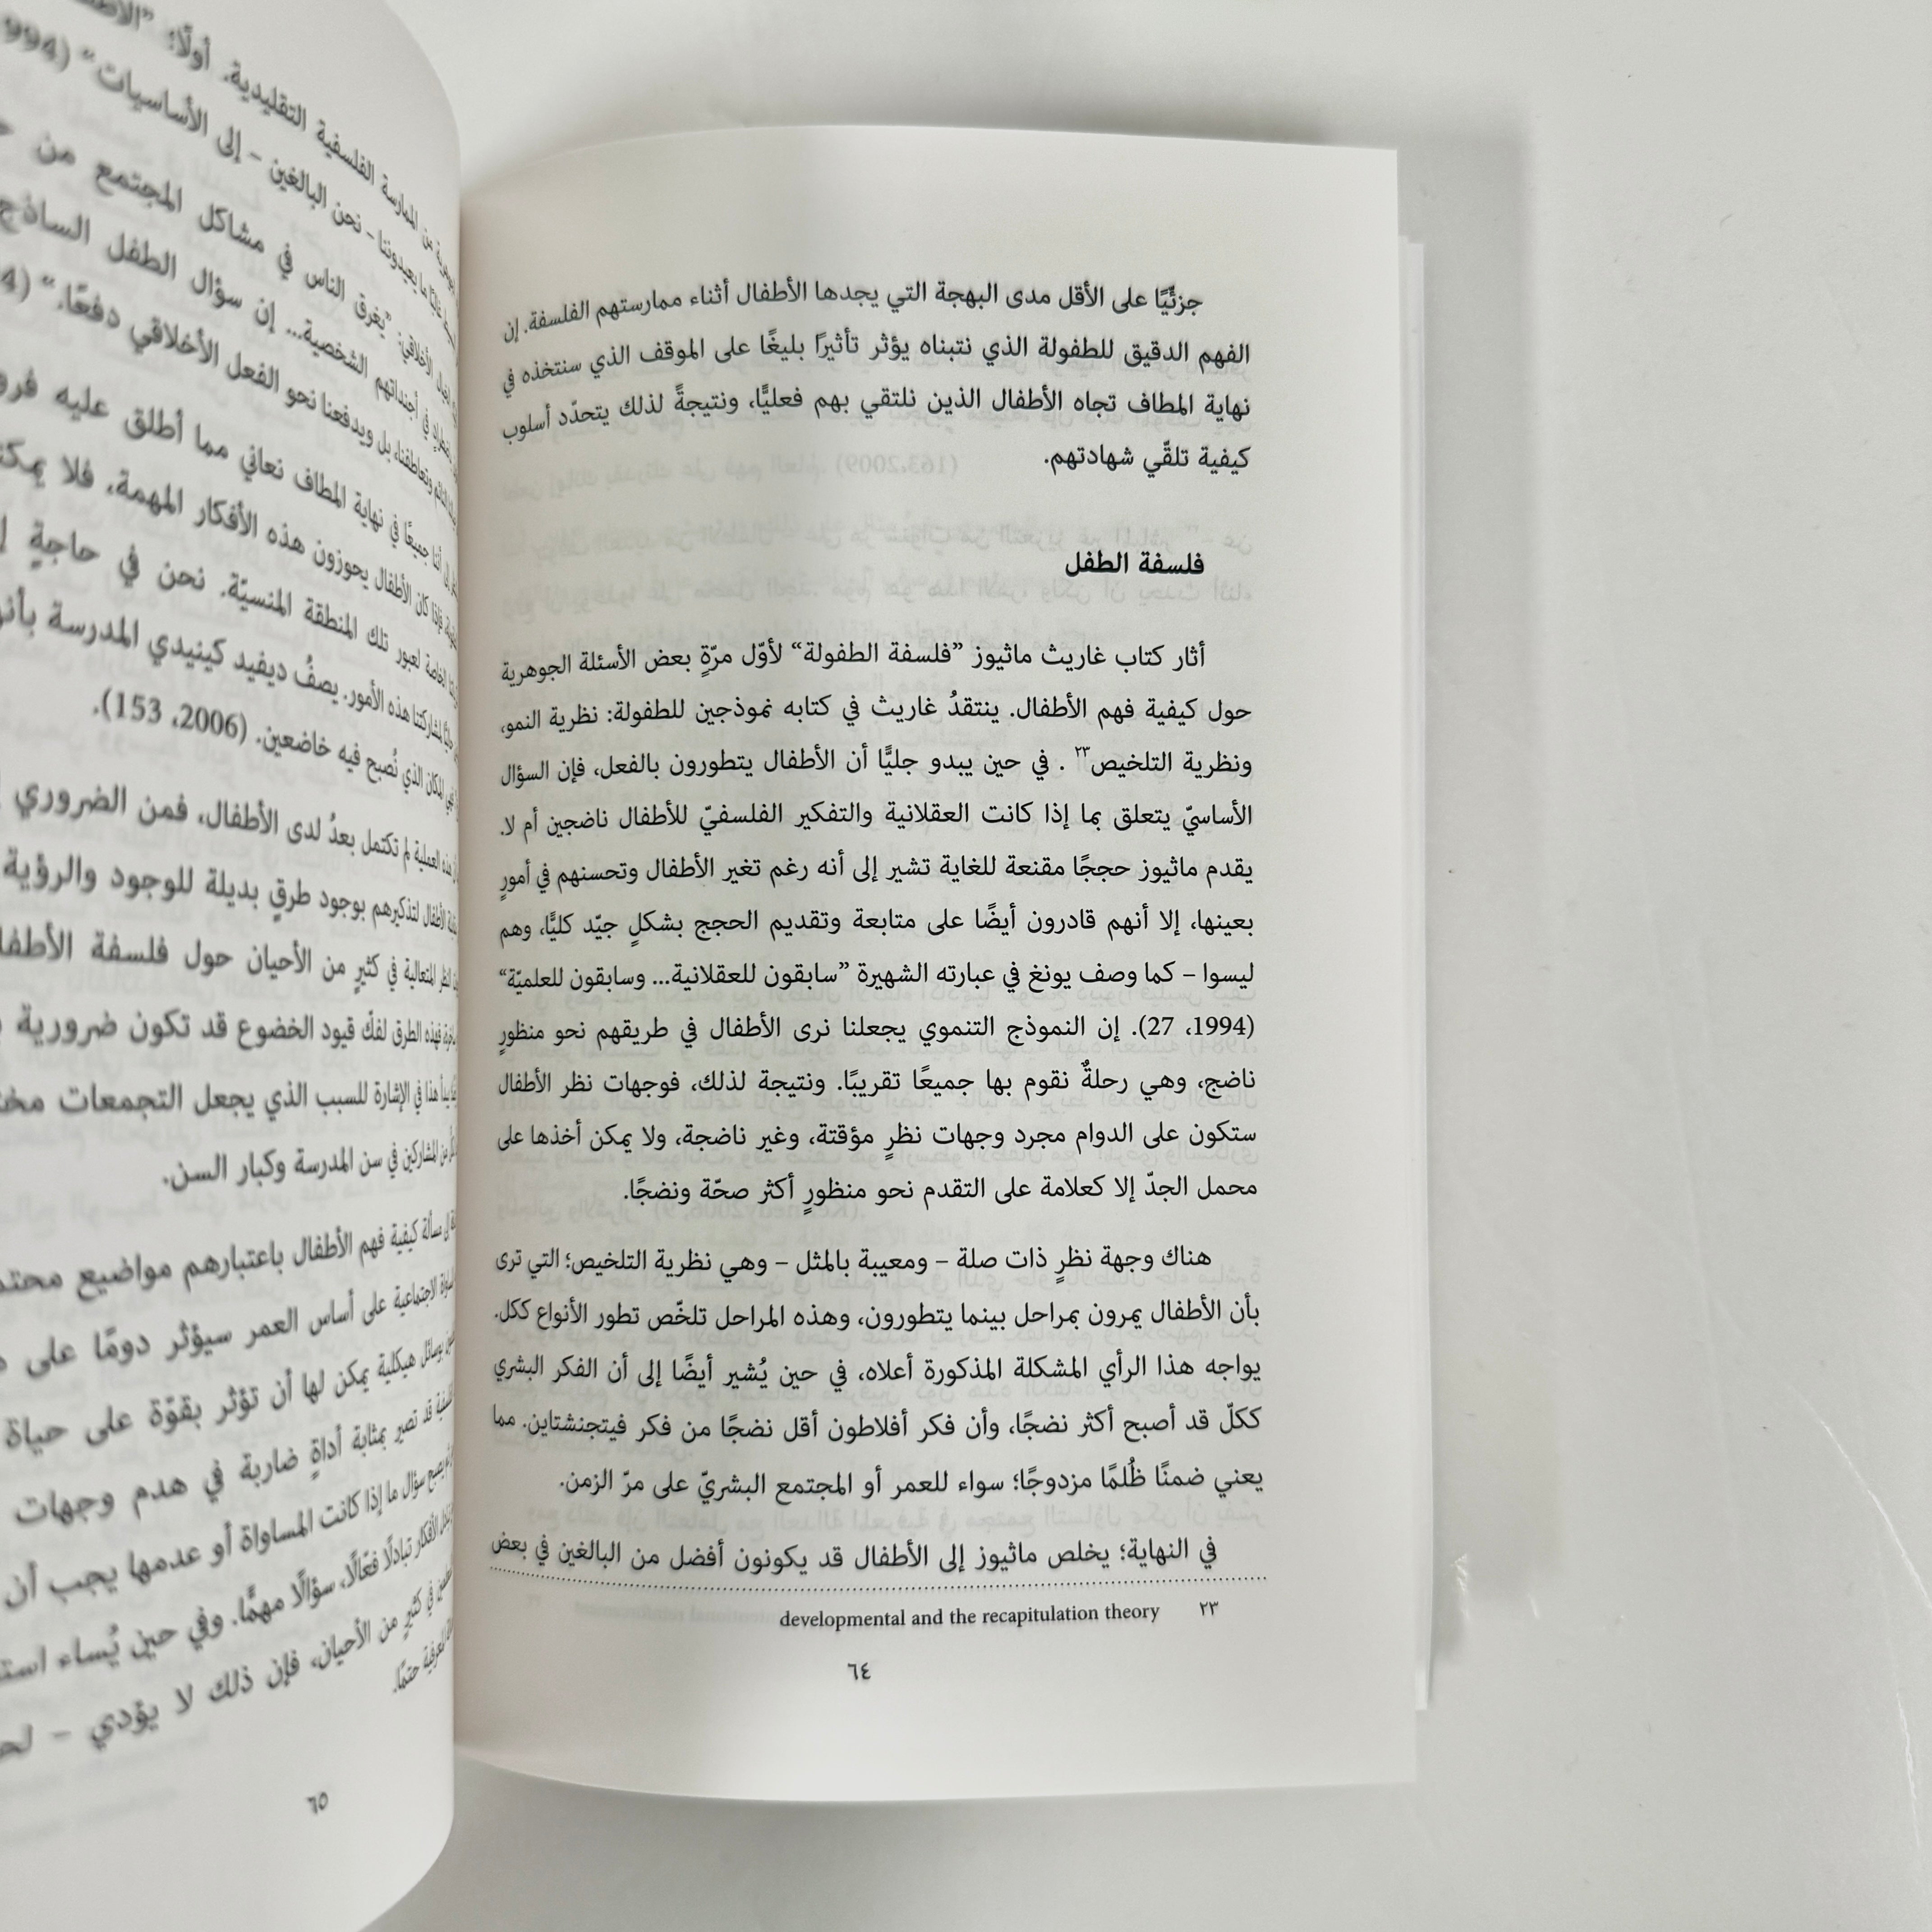 جزئيًّا على الأقل مدى البهجة التي يجدها الأطفال أثناء ممارستهم الفلسفة. إن
الفهم الدقيق للطفولة الذي نتبناه يؤثر تأثيرًا بليغًا على الموقف الذي سنتخذه في
نهاية المطاف تجاه الأطفال الذين نلتقي بهم فعليًّا، ونتيجةً لذلك يتحدّد أسلوب
كيفية تلقّي شهادتهم.
فلسفة الطفل
أثار كتاب غاريث ماثيوز ”فلسفة الطفولة“ لأوّل مرّةٍ بعض الأسئلة الجوهرية
حول كيفية فهم الأطفال. ينتقدُ غاريث في كتابه نموذجين للطفولة: نظرية النمو،
ونظرية التلخيص٢٣ . في حين يبدو جليًّا أن الأطفال يتطورون بالفعل، فإن السؤال
الأساسيّ يتعلق بما إذا كانت العقلانية والتفكير الفلسفيّ للأطفال ناضجين أم لا.
يقدم ماثيوز حججًا مقنعة للغاية تشير إلى أنه رغم تغير الأطفال وتحسنهم في أمورٍ
بعينها، إلا أنهم قادرون أيضًا على متابعة وتقديم الحجج بشكلٍ جيّد كليًّا، وهم
ليسوا – كما وصف يونغ في عبارته الشهيرة ”سابقون للعقلانية... وسابقون للعلميّة“
(1994، 27). إن النموذج التنموي يجعلنا نرى الأطفال في طريقهم نحو منظورٍ
ناضج، وهي رحلةٌ نقوم بها جميعًا تقريبًا. ونتيجة لذلك، فوجهات نظر الأطفال
ستكون على الدوام مجرد وجهات نظرٍ مؤقتة، وغير ناضجة، ولا يمكن أخذها على
محمل الجدّ إلا كعلامة على التقدم نحو منظورٍ أكثر صحّة ونضجًا.
هناك وجهة نظرٍ ذات صلة – ومعيبة بالمثل – وهي نظرية التلخيص؛ التي ترى
بأن الأطفال يمرون بمراحل بينما يتطورون، وهذه المراحل تلخّص تطور الأنواع ككل.
يواجه هذا الرأي المشكلة المذكورة أعلاه، في حين يُشير أيضًا إلى أن الفكر البشري
ككلّ قد أصبح أكثر نضجًا، وأن فكر أفلاطون أقل نضجًا من فكر فيتجنشتاين. مما
يعني ضمنًا ظُلمًا مزدوجًا؛ سواء للعمر أو المجتمع البشريّ على مرّ الزمن.
في النهاية؛ يخلص ماثيوز إلى الأطفال قد يكونون أفضل من البالغين في بعض
٢٣ developmental and the recapitulation theory
٦٤
من الممارسة الفلسفية التقليدية. أولًا؛
ما يعيدوننا – نحن البالغين – إلى الأساسيات“
الأخلاقي: ”يغرق الناس في مشاكل المجتمع من
في أجنداتهم الشخصية... إن سؤال الطفل الساذج
وتعاطفنا، بل ويدفعنا نحو الفعل الأخلاقي دفعًا.“
أننا جميعًا في نهاية المطاف نعاني مما أطلق عليه
كان الأطفال يحوزون هذه الأفكار المهمة، فلا
لعبور تلك المنطقة المنسيّة. نحن في حاجةٍ
لمشاركتنا هذه الأمور. يصفُ ديفيد كينيدي المدرسة
المكان الذي نُصبح فيه خاضعين. (2006، 153).
هذه العملية لم تكتمل بعدُ لدى الأطفال، فمن الضروري
الأطفال لتذكيرهم بوجود طرقٍ بديلة للوجود والرؤية
المتعالية في كثيرٍ من الأحيان حول فلسفة
فهذه الطرق لفكّ قيود الخضوع قد تكون ضرورية
هذا في الإشارة للسبب الذي يجعل التجمعات
من المشاركين في سن المدرسة وكبار السن.
مسألة كيفية فهم الأطفال باعتبارهم مواضيع
الاجتماعية على أساس العمر سيؤثر دومًا على
بوسائل هيكلية يمكن لها أن تؤثر بقوّة على حياة
قد تصير بمثابة أداةٍ ضاربة في هدم وجهات
يصبح سؤال ما إذا كانت المساواة أو عدمها يجب أن
الأفكار تبادلًا فعّالًا، سؤالًا مهمًّا. وفي حين يُساء
في كثيرٍ من الأحيان، فإن ذلك لا يؤدي –
حتمًا.
٦٥